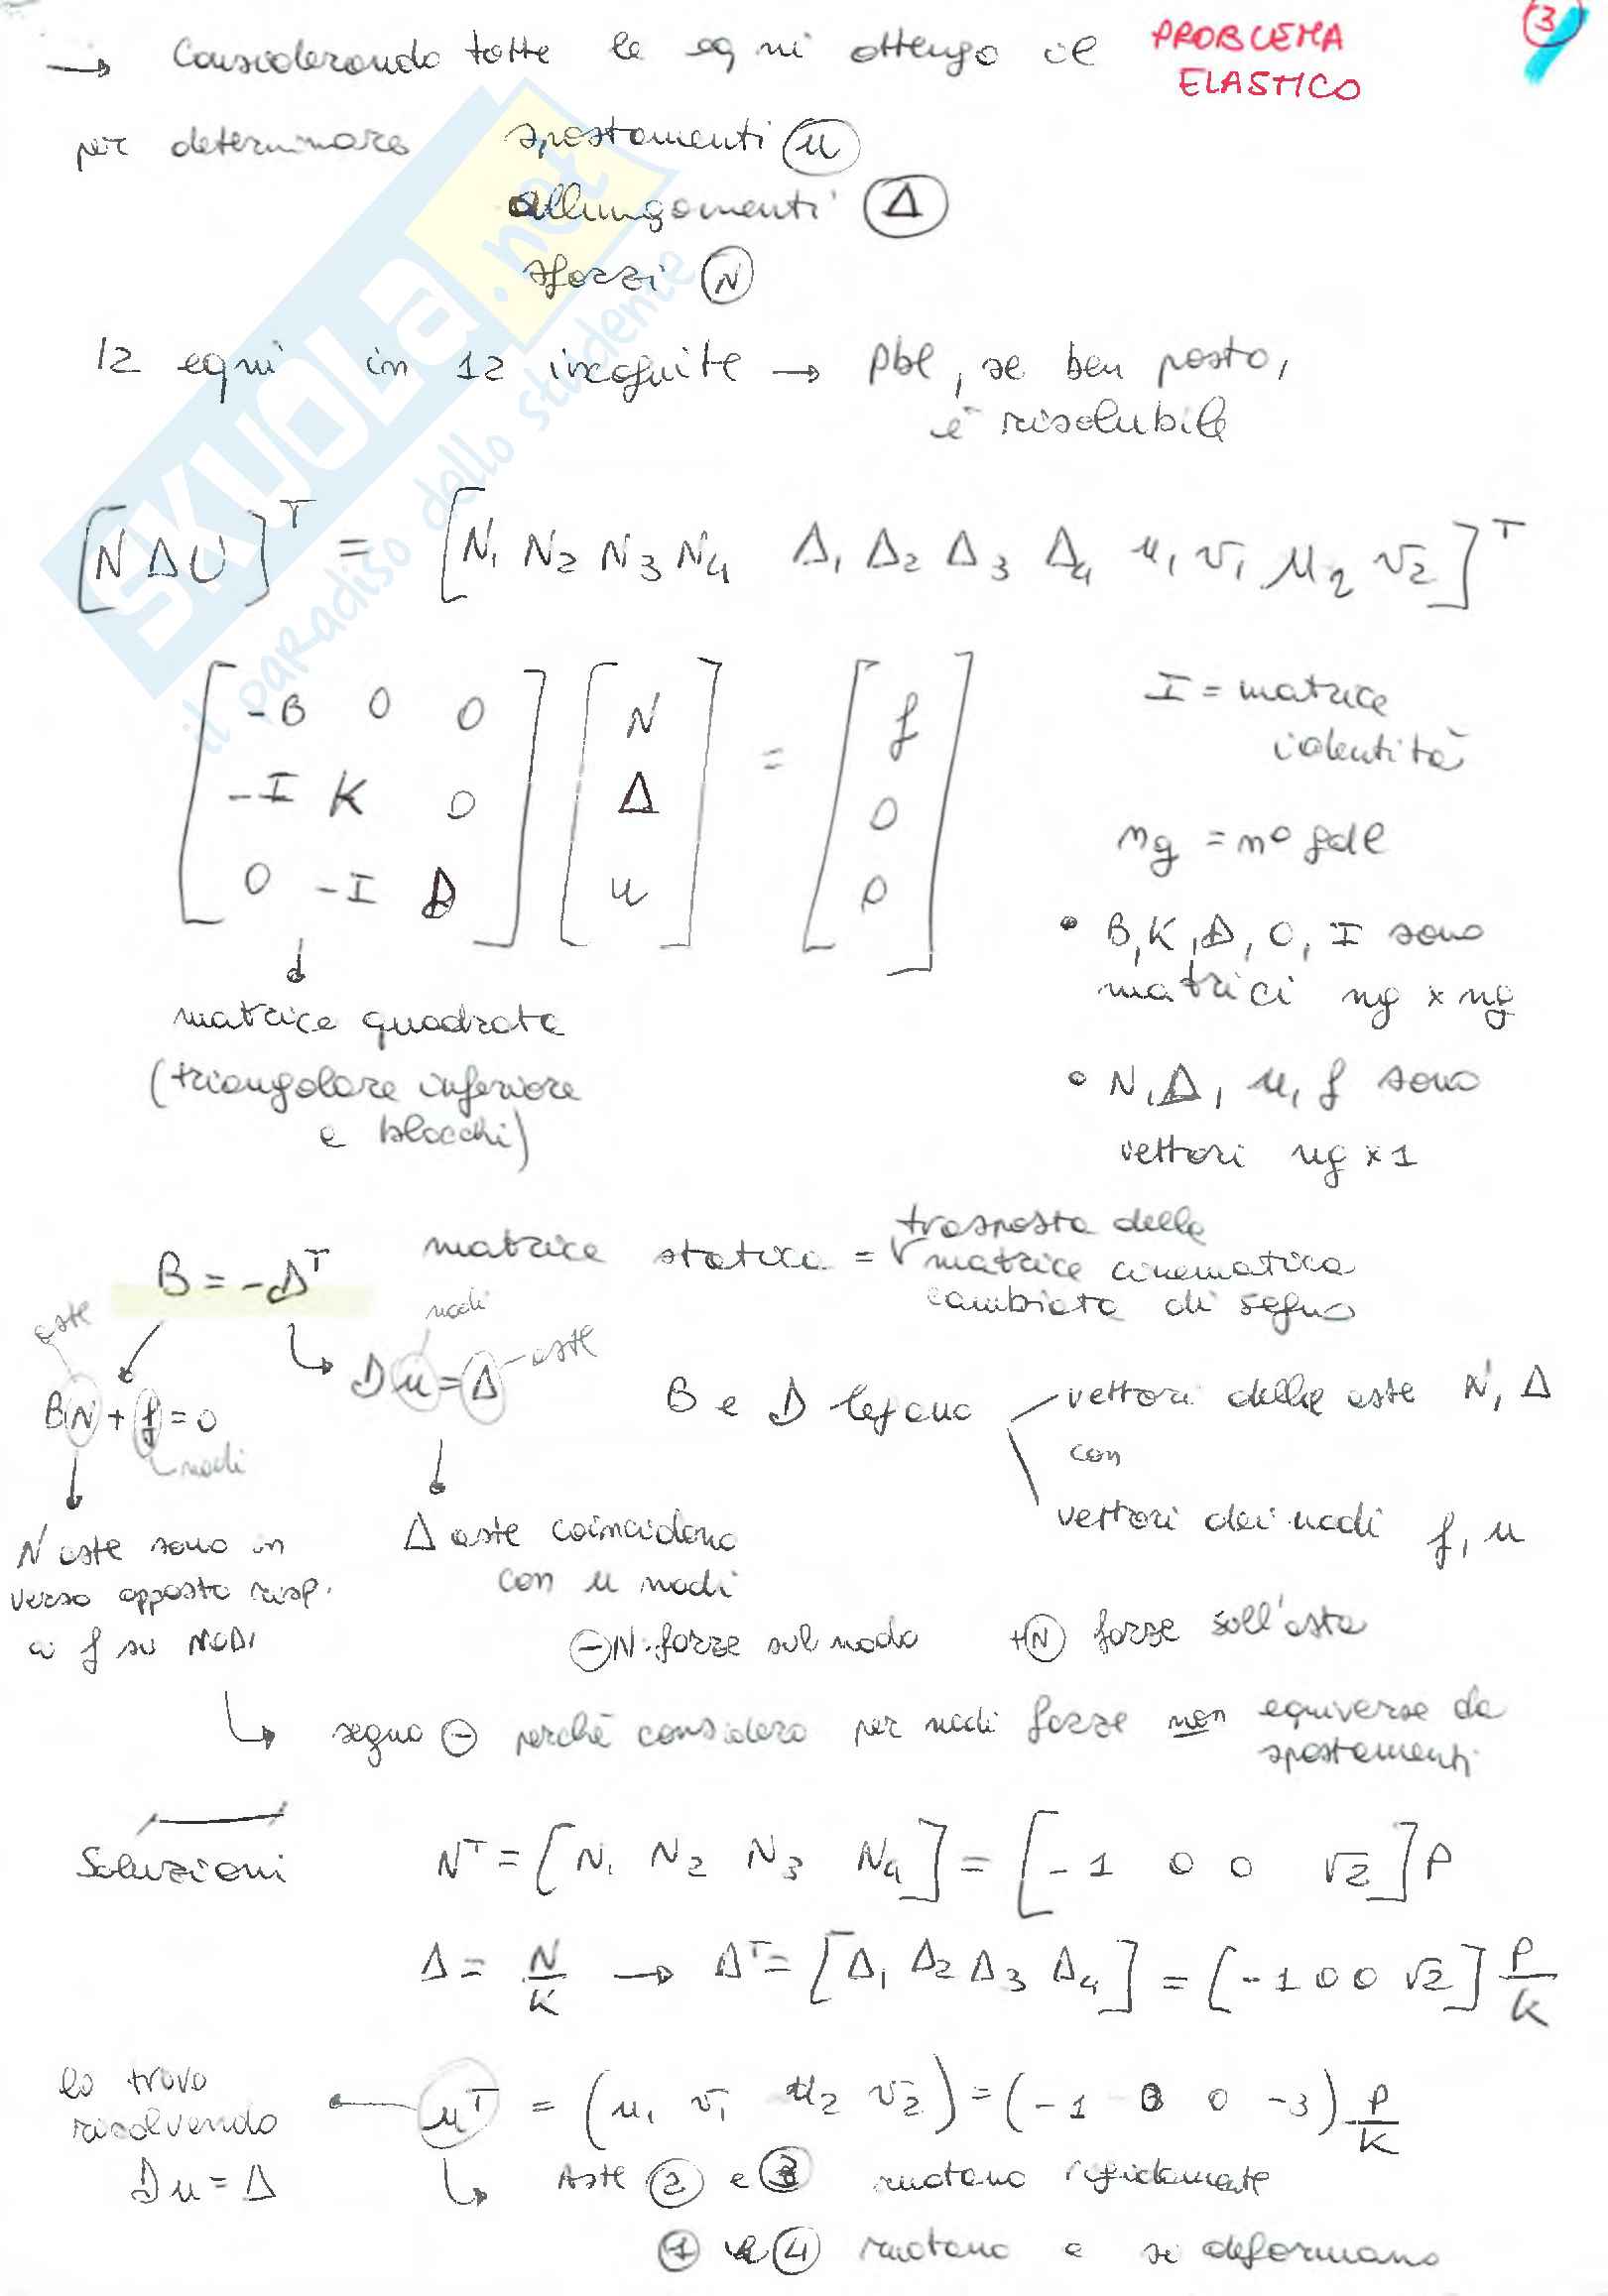 3
→ Considerando tutte le eqni ottengo il PROBLEMA
ELASTICO
per determinare spostamenti u
allungamenti Δ
sforzi N
12 eqni in 12 incognite → pbl, se ben posto,
è risolubile
[N Δ U]ᵀ = [N₁ N₂ N₃ N₄ Δ₁ Δ₂ Δ₃ Δ₄ u₁ v₁ u₂ v₂]ᵀ
[-B 0 0] [N] = [f]
[-I K 0] [Δ] [0]
[0 -I D] [u] [0]
I = matrice
identità
ng = n° gdl
• B, K, D, 0, I sono
matrici ng x ng
• N, Δ, u, f sono
vettori ng x 1
matrice quadrata
(triangolare inferiore
a blocchi)
B = -Dᵀ matrice statica = trasposta della
matrice cinematica
cambiata di segno
aste
nodi
BN + f = 0
nodi
Du = Δ
aste
B e D legano vettori delle aste N, Δ
con
vettori dei nodi f, u
N aste sono in
verso opposto risp.
a f su NODI
Δ aste coincidono
con u nodi
-N: forze sul nodo +N forze sull'asta
segno - perchè considero per nodi forze non equiverse da
spostamenti
Soluzioni Nᵀ = [N₁ N₂ N₃ N₄] = [-1 0 0 √2] P
Δ = N/K → Δᵀ = [Δ₁ Δ₂ Δ₃ Δ₄] = [-1 0 0 √2] P/K
lo trovo
risolvendo
Du = Δ
uᵀ = (u₁ v₁ u₂ v₂) = (-1 0 0 -3) P/K
Aste 2 e 3 ruotano rigidamente
1 e 4 ruotano e si deformano
SKUOLA.net
il paradiso dello studente